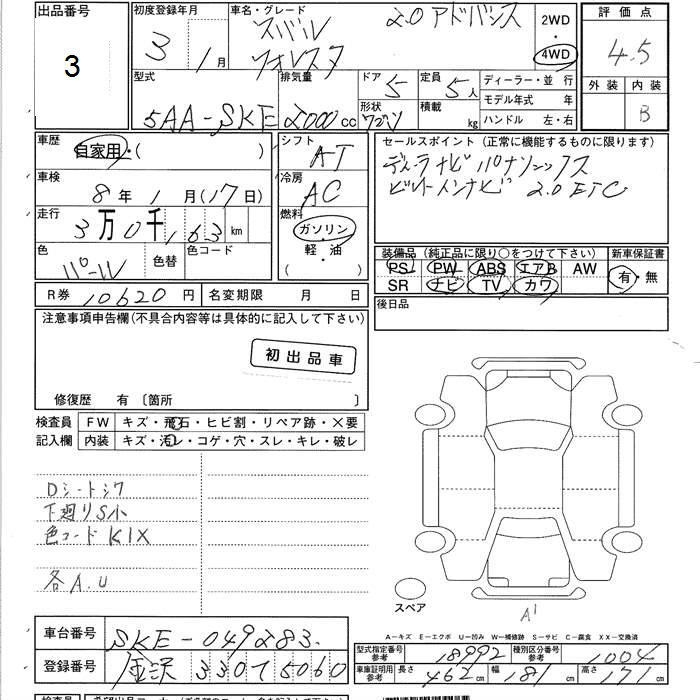 出品番号
3
初度登録年月
3年 1月
車名・グレード
スバル
フォレスタ
2.0 アドバンス
2WD
4WD
評価点
4.5
外装 内装
B
型式
5AA-SKE
排気量
2000cc
ドア
5
形状
ワゴン
定員
5人
積載
kg
ディーラー・並行
モデル年式 年
ハンドル 左・右
車歴
自家用・( )
シフト
AT
セールスポイント(正常に機能するものに限ります)
ディーラナビ パナソニックス
ビルトインナビ 2.0 ETC
車検
8年1月(17日)
冷房
AC
走行
3万0千163km
燃料
ガソリン
・
軽・油
( )
色
パール
色替
色コード
装備品(純正品に限り○をつけて下さい)
PS PW ABS エアB AW
SR ナビ TV カワ
新車保証書
有・無
R券 10620円
名変期限 月 日
後日品
注意事項申告欄(不具合内容等は具体的に記入して下さい)
初出品車
修復歴 有〔箇所 〕
検査員
記入欄
FW キズ・飛石・ヒビ割・リペア跡・×要
内装 キズ・汚レ・コゲ・穴・スレ・キレ・破レ
Dシートシワ
下廻りS小
色コードK1X
各A.U
スペア
A1
A-キズ E-エクボ U-凹み W-補修跡 S-サビ C-腐食 XX-交換済
車台番号
SKE-049283
登録番号
金沢 330 5060
型式指定番号
参考
18992
種別区分番号
参考
1004
車庫証明用
参考
長さ
462cm
幅
181cm
高さ
171cm